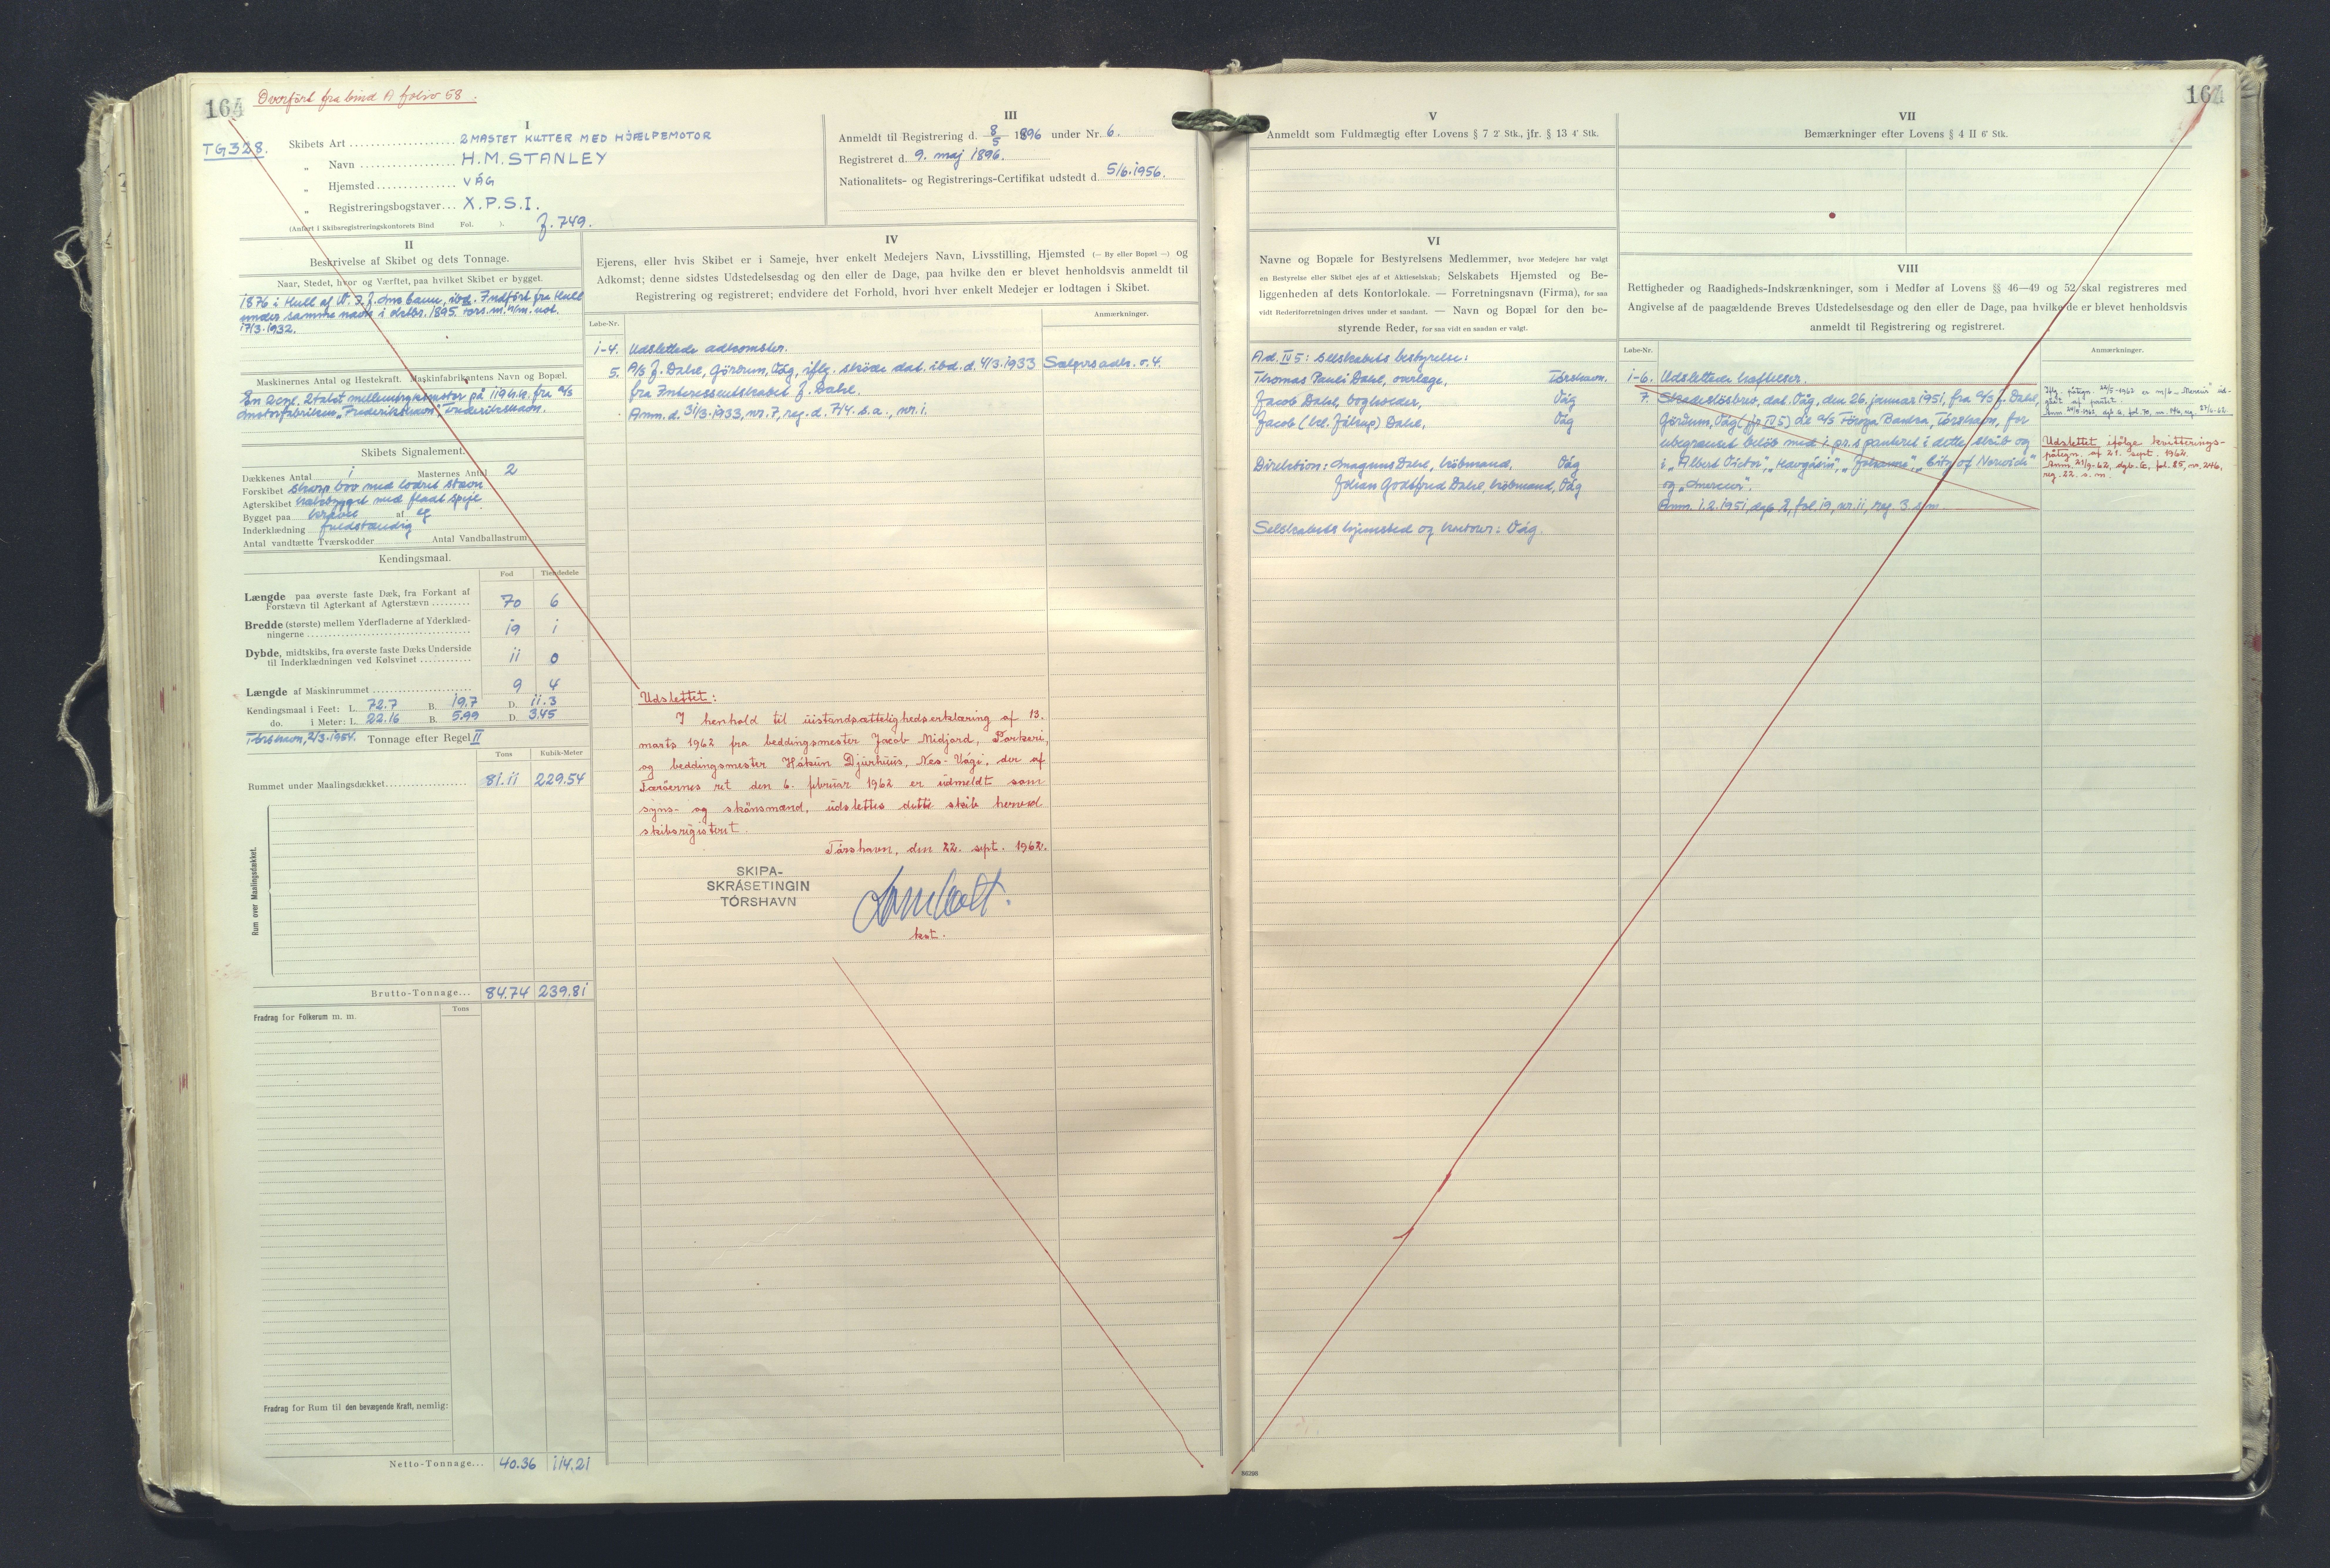 164
Overført fra bind A folio 68.
TG 328.
I
Skibets Art 2 MASTET KUTTER MED HJÆLPEMOTOR
" Navn H.M. STANLEY
" Hjemsted VÁG
" Registreringsbogstaver X.P.S.I.
(Anført i Skibsregistreringskontorets Bind Fol. ). f. 749.
III
Anmeldt til Registrering d. 8/5 1896 under Nr. 6.
Registreret d. 9. maj 1896.
Nationalitets- og Registrerings-Certifikat udstedt d. 5/6.1956.
II
Beskrivelse af Skibet og dets Tonnage.
Naar, Stedet, hvor og Værftet, paa hvilket Skibet er bygget.
1876 i Hull af W. ibd. Indført fra Hull
under samme navn i 1895.
17/3.1932.
Maskinernes Antal og Hestekraft. Maskinfabrikantens Navn og Bopæl.
En 2 cyl. 2 takt mellemtryksmotor på 119 h.k. fra A/S
Motorfabriken "Frederikshavn", Frederikshavn.
Skibets Signalement.
Dækkenes Antal 1 Masternes Antal 2
Forskibet skarp bov med lodret stævn
Agterskibet halvbygget med fladt spejl
Bygget paa kravel af eg
Inderklædning fuldstændig
Antal vandtætte Tværskodder Antal Vandballastrum
Kendingsmaal.
Fod Tiendedele
Længde paa øverste faste Dæk, fra Forkant af
Forstævn til Agterkant af Agterstævn 70 6
Bredde (største) mellem Yderfladerne af Yderklæd-
ningerne 19 1
Dybde, midtskibs, fra øverste faste Dæks Underside
til Inderklædningen ved Kølsvinet 11 0
Længde af Maskinrummet 9 4
Kendingsmaal i Feet: L. 72.7 B. 19.7 D. 11.3
do. i Meter: L. 22.16 B. 5.99 D. 3.45
Tórshavn, 2/3.1954. Tonnage efter Regel II
Tons Kubik-Meter
Rummet under Maalingsdækket 81.11 229.54
Rum over Maalingsdækket.
Brutto-Tonnage 84.74 239.81
Fradrag for Folkerum m. m. Tons
Fradrag for Rum til den bevægende Kraft, nemlig:
Netto-Tonnage 40.36 114.21
IV
Ejerens, eller hvis Skibet er i Sameje, hver enkelt Medejers Navn, Livsstilling, Hjemsted (— By eller Bopæl —) og
Adkomst; denne sidstes Udstedelsesdag og den eller de Dage, paa hvilke den er blevet henholdsvis anmeldt til
Registrering og registreret; endvidere det Forhold, hvori hver enkelt Medejer er lodtagen i Skibet.
Løbe-Nr. Anmærkninger.
1-4. Udslettede adkomster.
5. A/S J. Dahl, Gördum, Vág, iflg. skøde dat. ibd. d. 4/3.1933 Sælgers adk. v. 4.
fra Interessentskabet J. Dahl.
Anm. d. 31/3.1933, nr. 7, reg. d. 7/4. s.a., nr. 1.
Udslettet:
I henhold til uistandsættelighedserklæring af 13.
marts 1962 fra beddingsmester Jacob Midjord, Porkeri,
og beddingsmester Hákun Djurhuus, Nes-Vági, der af
Færöernes ret den 6. februar 1962 er udmeldt som
syns- og skönsmænd, udslettes dette skib herved
skibsregisteret.
Tórshavn, den 22. sept. 1962.
SKIPA-
SKRÁSETINGIN
TÓRSHAVN
kst.
164
V
Anmeldt som Fuldmægtig efter Lovens § 7 2' Stk., jfr. § 13 4' Stk.
VI
Navne og Bopæle for Bestyrelsens Medlemmer, hvor Medejere har valgt
en Bestyrelse eller Skibet ejes af et Aktieselskab; Selskabets Hjemsted og Be-
liggenheden af dets Kontorlokale. — Forretningsnavn (Firma), for saa
vidt Rederiforretningen drives under et saadant. — Navn og Bopæl for den be-
styrende Reder, for saa vidt en saadan er valgt.
Ad. IV 5: Selskabets bestyrelse:
Thomas Pauli Dahl, overlæge, Tórshavn.
Jacob Dahl, bogholder, Vág
Jacob Dahl, Vág
Direktion: Magnus Dahl, købmand, Vág
Johan Godtfred Dahl, købmand, Vág
Selskabets hjemsted og kontor: Vág.
VII
Bemærkninger efter Lovens § 4 II 6' Stk.
VIII
Rettigheder og Raadigheds-Indskrænkninger, som i Medfør af Lovens §§ 46—49 og 52 skal registreres med
Angivelse af de paagældende Breves Udstedelsesdage og den eller de Dage, paa hvilke de er blevet henholdsvis
anmeldt til Registrering og registreret.
Løbe-Nr. Anmærkninger.
1-6. Udslettede hæftelser.
7. Skadesløsbrev, dat. Vág, den 26. januar 1951, fra A/S J. Dahl,
Gördum, Vág (jfr. IV 5) til A/S Føroya Banka, Tórshavn, for
ubegrænset beløb med 1. pr. panteret i dette skib og
i "Albert Victor", "Havgásin", "Johanna", "City of Norwich"
og "Mercur".
Anm. 1.2.1951, dgb. 2, fol. 19, nr. 11, reg. 3. s.m.
Udslettet ifølge kvitterings-
påtegn. af 21. sept. 1962.
Anm. 21/9-62, dgb. G, fol. 85, nr. 246,
reg. 22. s. m.
86298